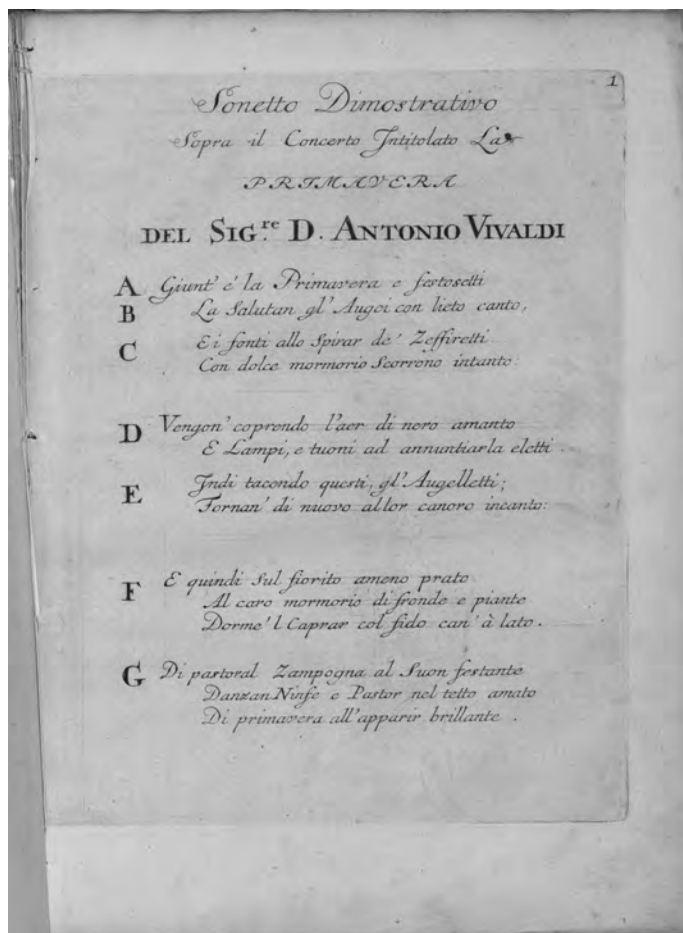 1
Sonetto Dimostrativo
Sopra il Concerto Intitolato La
PRIMAVERA
DEL SIG.re D. ANTONIO VIVALDI
A Giunt' é la Primavera e festosetti
B La Salutan gl' Augei con lieto canto,
C E i fonti allo Spirar de' Zeffiretti
Con dolce mormorio Scorrono intanto:
D Vengon' coprendo l'aer di nero amanto
E Lampi, e tuoni ad annuntiarla eletti.
E Indi tacendo questi, gl' Augelletti;
Tornan' di nuovo al lor canoro incanto:
F E quindi sul fiorito ameno prato
Al caro mormorio di fronde e piante
Dorme 'l Caprar col fido can' à lato.
G Di pastoral Zampogna al Suon festante
Danzan Ninfe e Pastor nel tetto amato
Di primavera all' apparir brillante.